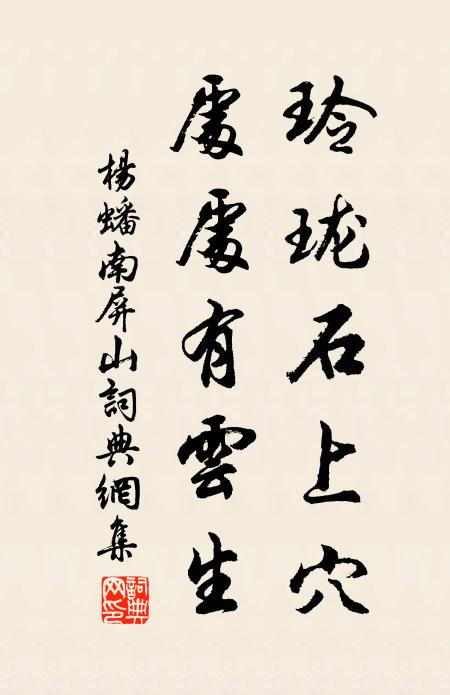 玲珑石上穴
處處有雲生
楊蟠南屏山詞典網集
詞典網印